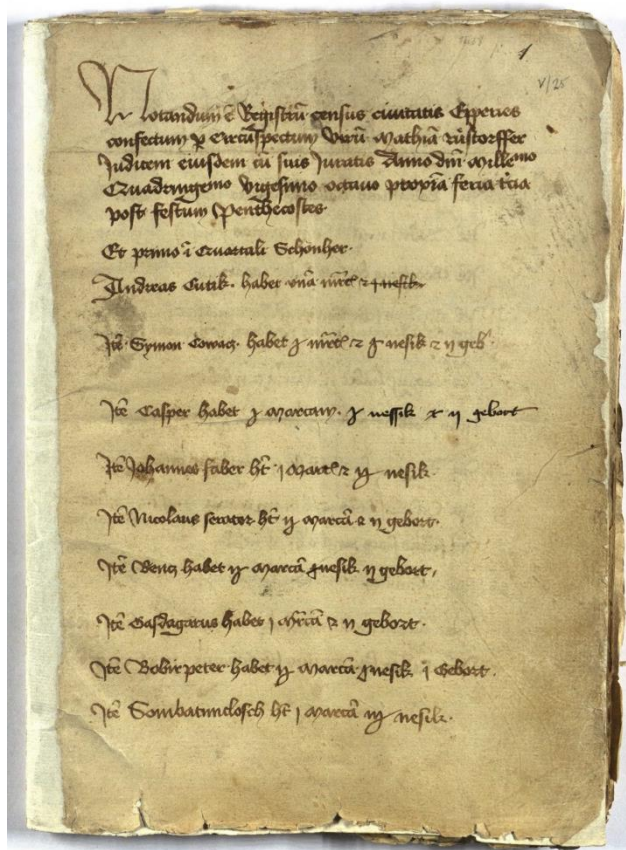 1
V/25
Notandum ē Registrū census ciuitatis Epperies
confectum p circūspectum virū Mathiā rūstorffer
Judicem eiusdem cū suis Juratis Anno dnī Millemo
Quadringemo vigesimo octauo proxīa feria tcia
post festum Penthecostes
Et primo ī Quartali Schonher
Andreas Cutik habet vnā mrct
Itē Symon habet j mrct nesik ij geb
Itē Casper habet j Marcam j nessik ij gebort
Itē Johannes faber ht j Marc nesik
Itē Nicolaus serator ht ij Marcā ij gebort
Itē Bencz habet ij Marcā nesik ij gebort
Itē Gasdagarus habet j Mrcā ij gebort
Itē Bobir peter habet ij Marcā nesik j Gebort
Itē Sombatunclosch ht j Marcā iij nesik